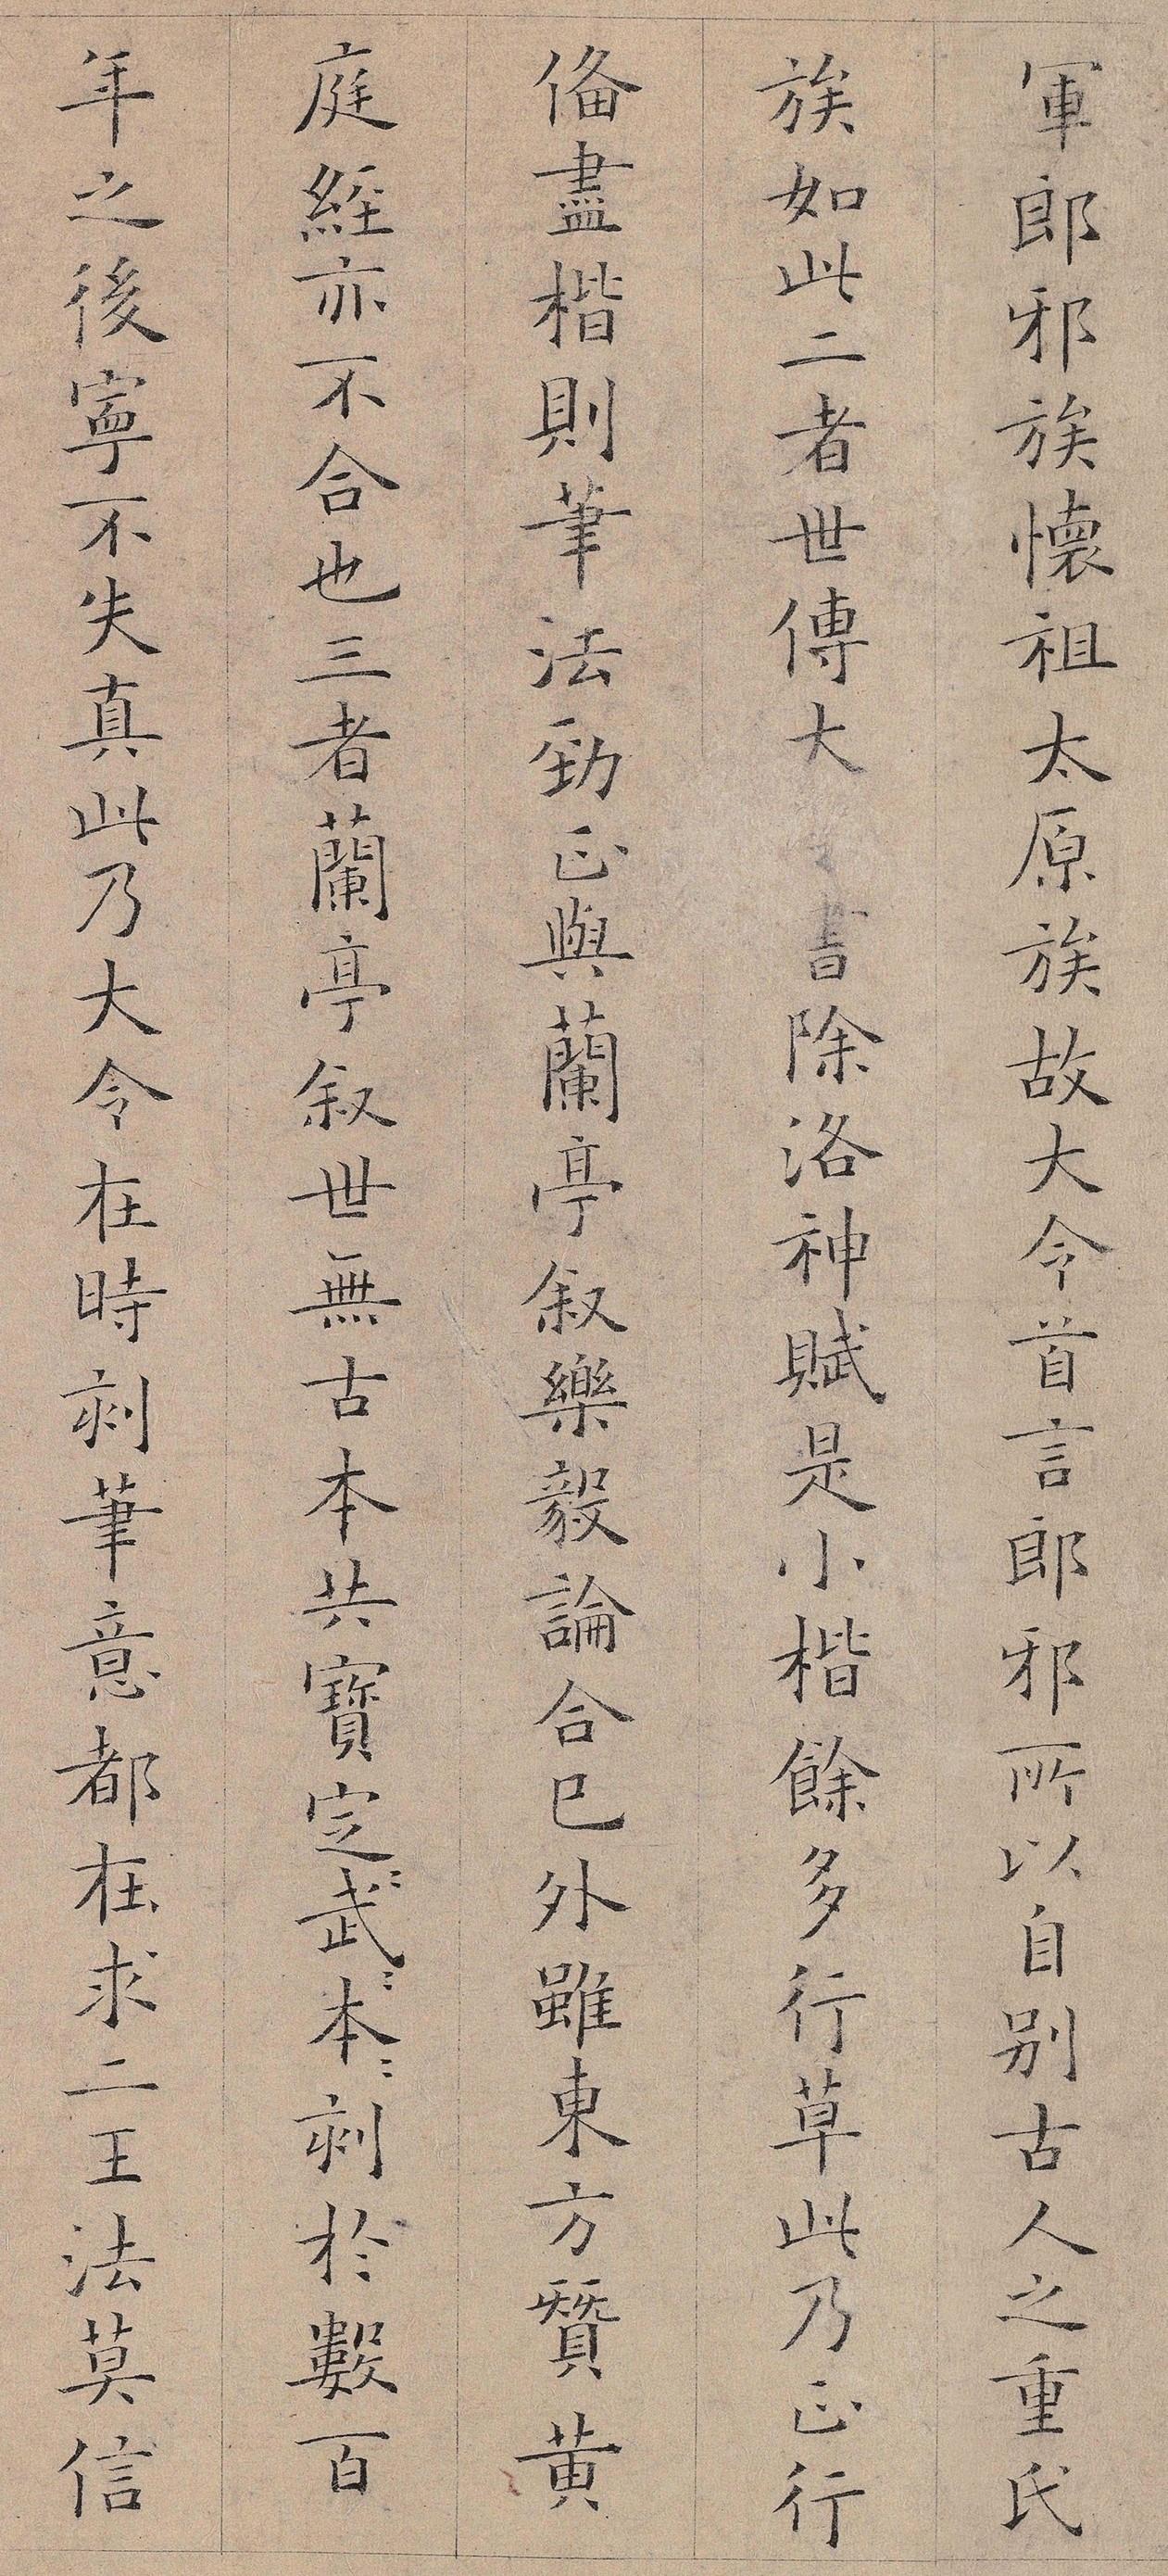 軍郎邪族懷祖太原族故大令首言郎邪所以自别古人之重氏
族如此二者世傳大書除洛神賦是小楷餘多行草此乃正行
俻盡楷則筆法勁正與蘭亭叙樂毅論合已外雖東方贊黄
庭經亦不合也三者蘭亭叙世無古本共寶定武本刻於數百
年之後寧不失真此乃大令在時刻筆意都在求二王法莫信